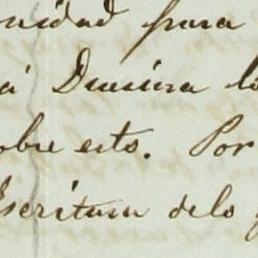 nidad para
á Dumira lo
obre esto. Por
Escritura delo